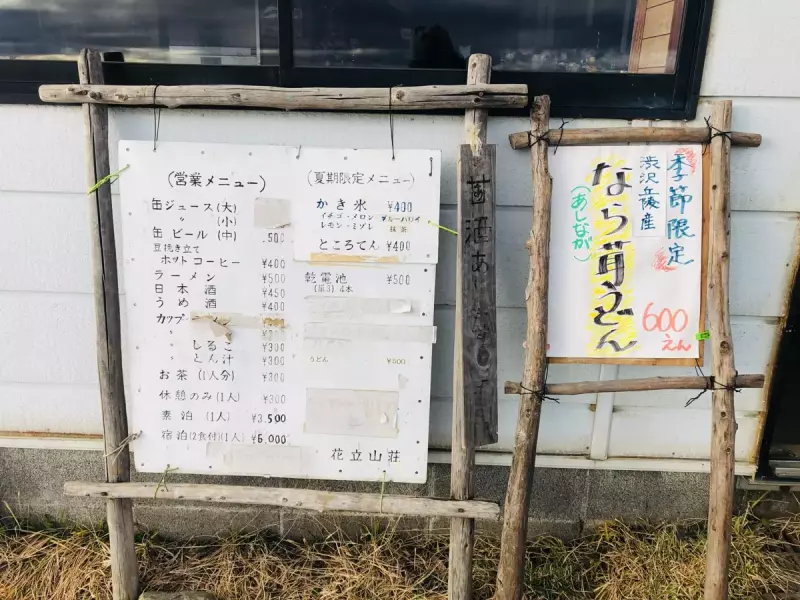 (営業メニュー)
缶ジュース(大)
〃 (小)
缶ビール(中) 500
豆挽き立て
ホットコーヒー ¥400
ラーメン ¥500
日本酒 ¥450
うめ酒 ¥400
カップ
〃 しるこ ¥300
〃 とん汁 ¥300
お茶(1人分) ¥300
休憩のみ(1人) ¥300
素泊(1人) ¥3,500
宿泊(2食付)(1人) ¥6,000
(夏期限定メニュー)
かき氷 ¥400
イチゴ・メロン・ブルーハワイ
レモン・ミゾレ 抹茶
ところてん ¥400
乾電池 ¥500
(単3)4本
うどん ¥800
花立山荘
甘酒あります
季節限定
渋沢丘陵産
なら茸うどん
(あしなが)
600
えん